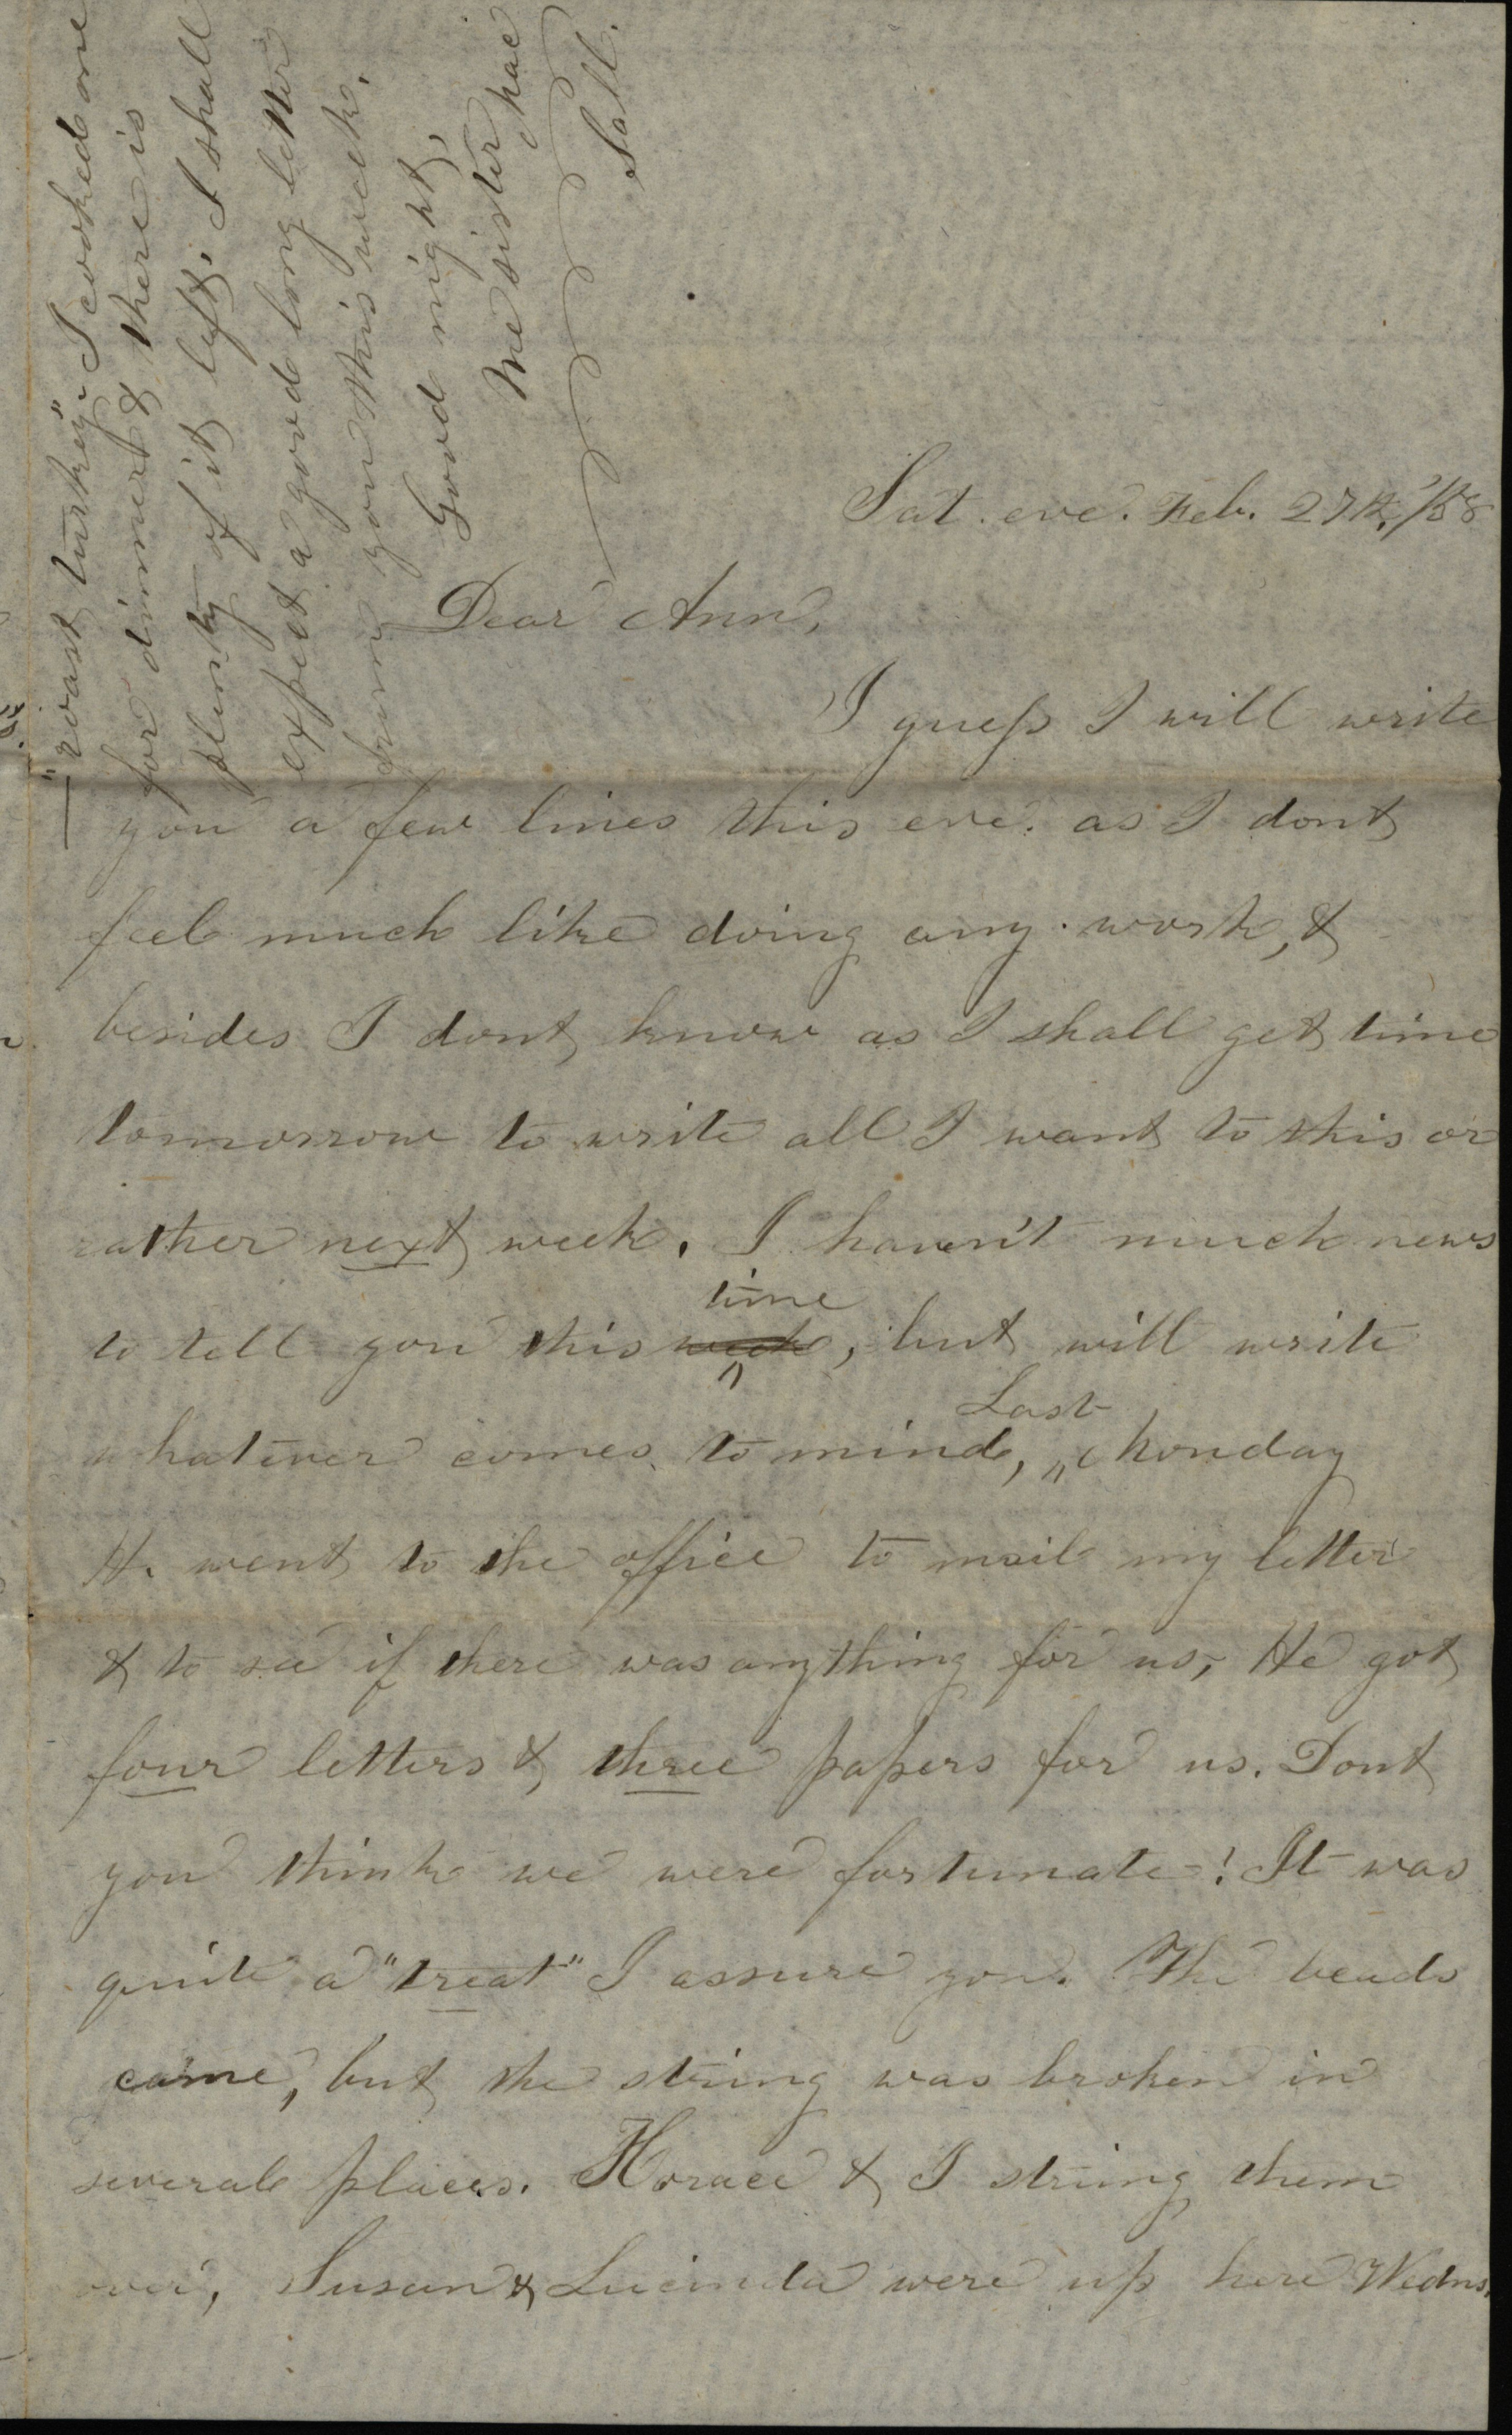 Sat. eve. Feb. 27th, /58
Dear Ann,
I guess I will write
you a few lines this eve. as I dont
feel much like doing any work, &
besides I dont know as I shall get time
tomorrow to write all I want to this or
rather next week. I haven't much news
to tell you this week time, but will write
whatever comes to mind, Last Monday
H. went to the office to mail my letter
& to see if there was anything for us, He got
four letters & three papers for us. Dont
you think we were fortunate! It was
quite a "treat" I assure you. The beads
came, but the string was broken in
several places. Horace & I strung them
over, Susan & Lucinda were up here Wedns.
"roast turkey" I cooked one
for dinner & there is
plenty of it left. I shall
expect a good long letter
from you this week.
Good night,
Me sister
Sall.